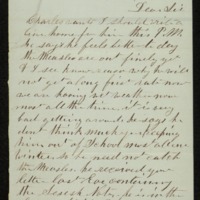 Dear Sir
Charles wants I should write a
line home for him this P.M.
He says he feels better to day
the Measles are out finely yo
I see know reason why he will
not get along first rate now
we are having wet weather now
most all the time, it is very
bad getting around he says he
dont think much of keeping
him out of School most all the
winter so he need not catch
the Measles he received your
letter last Eve containing
the